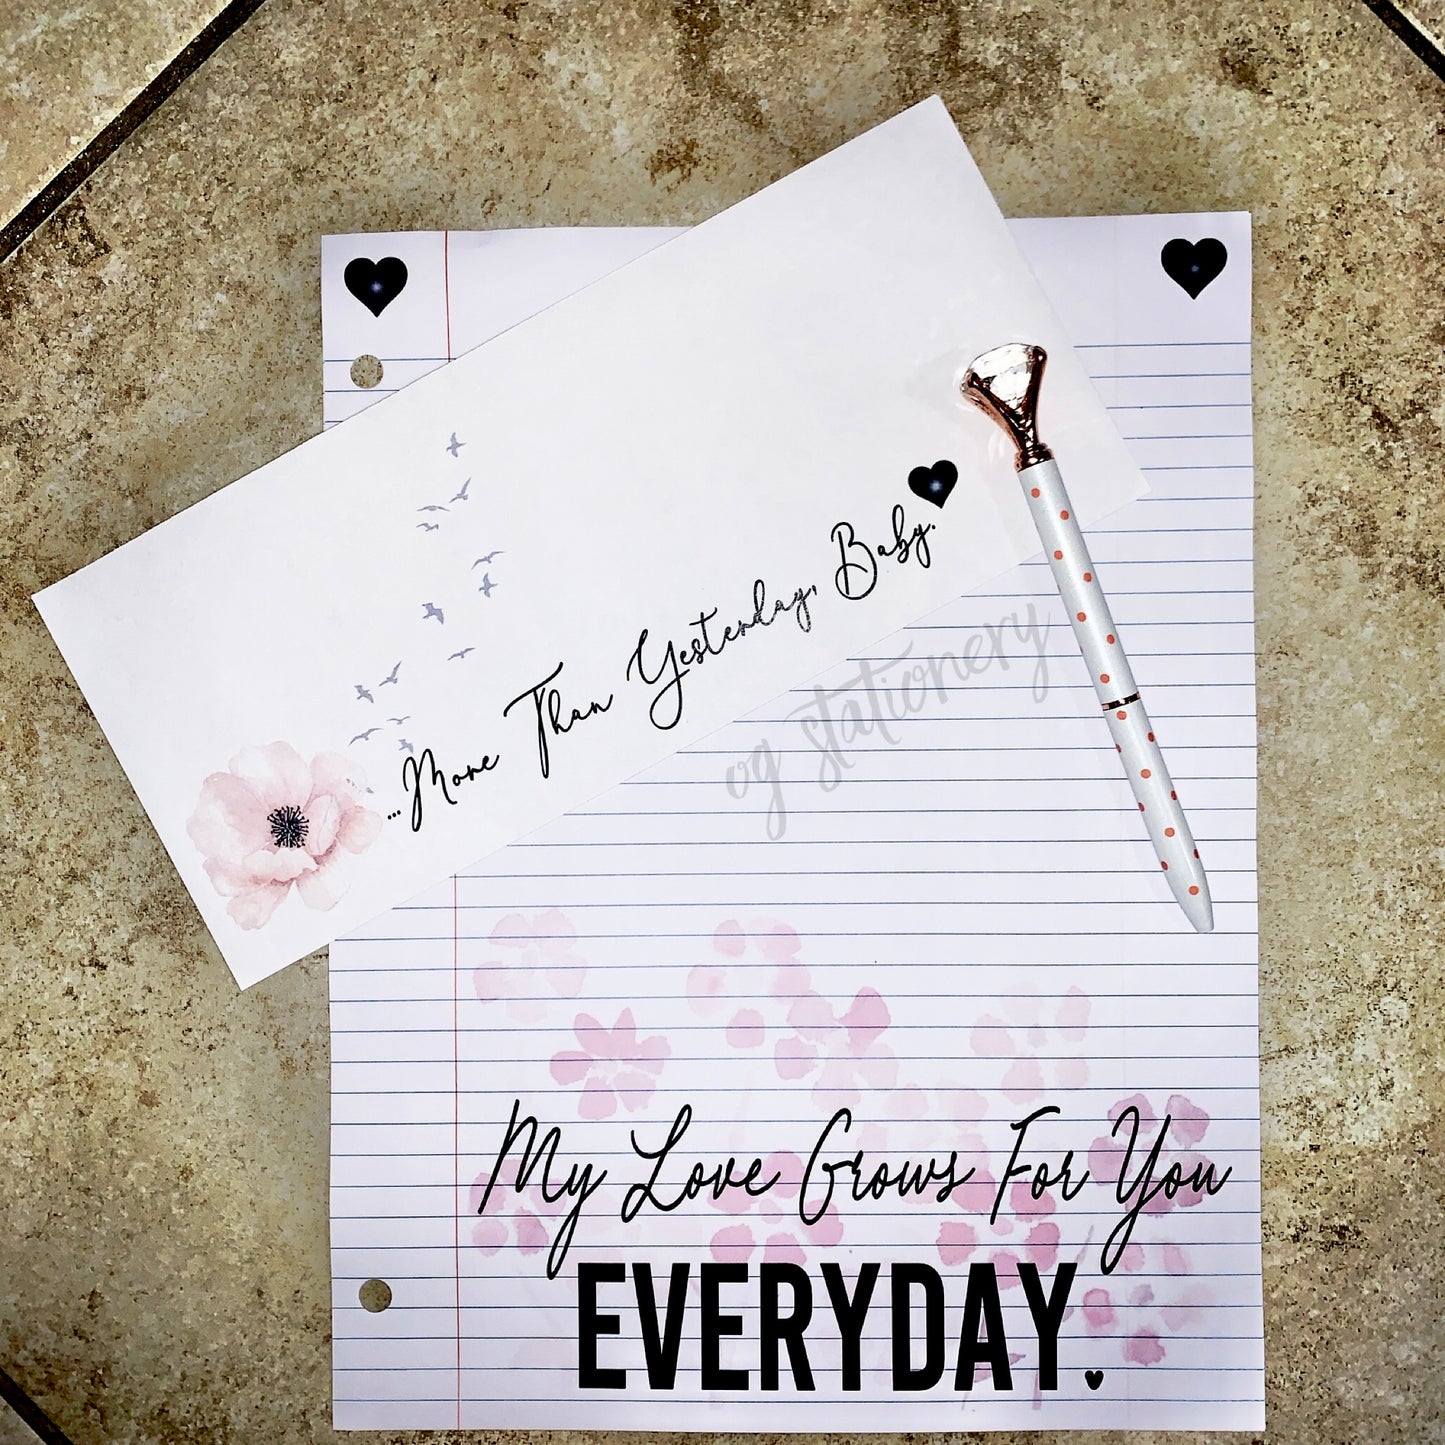 ...More Than Yesterday, Baby.
og stationery
My Love Grows For You
EVERYDAY.